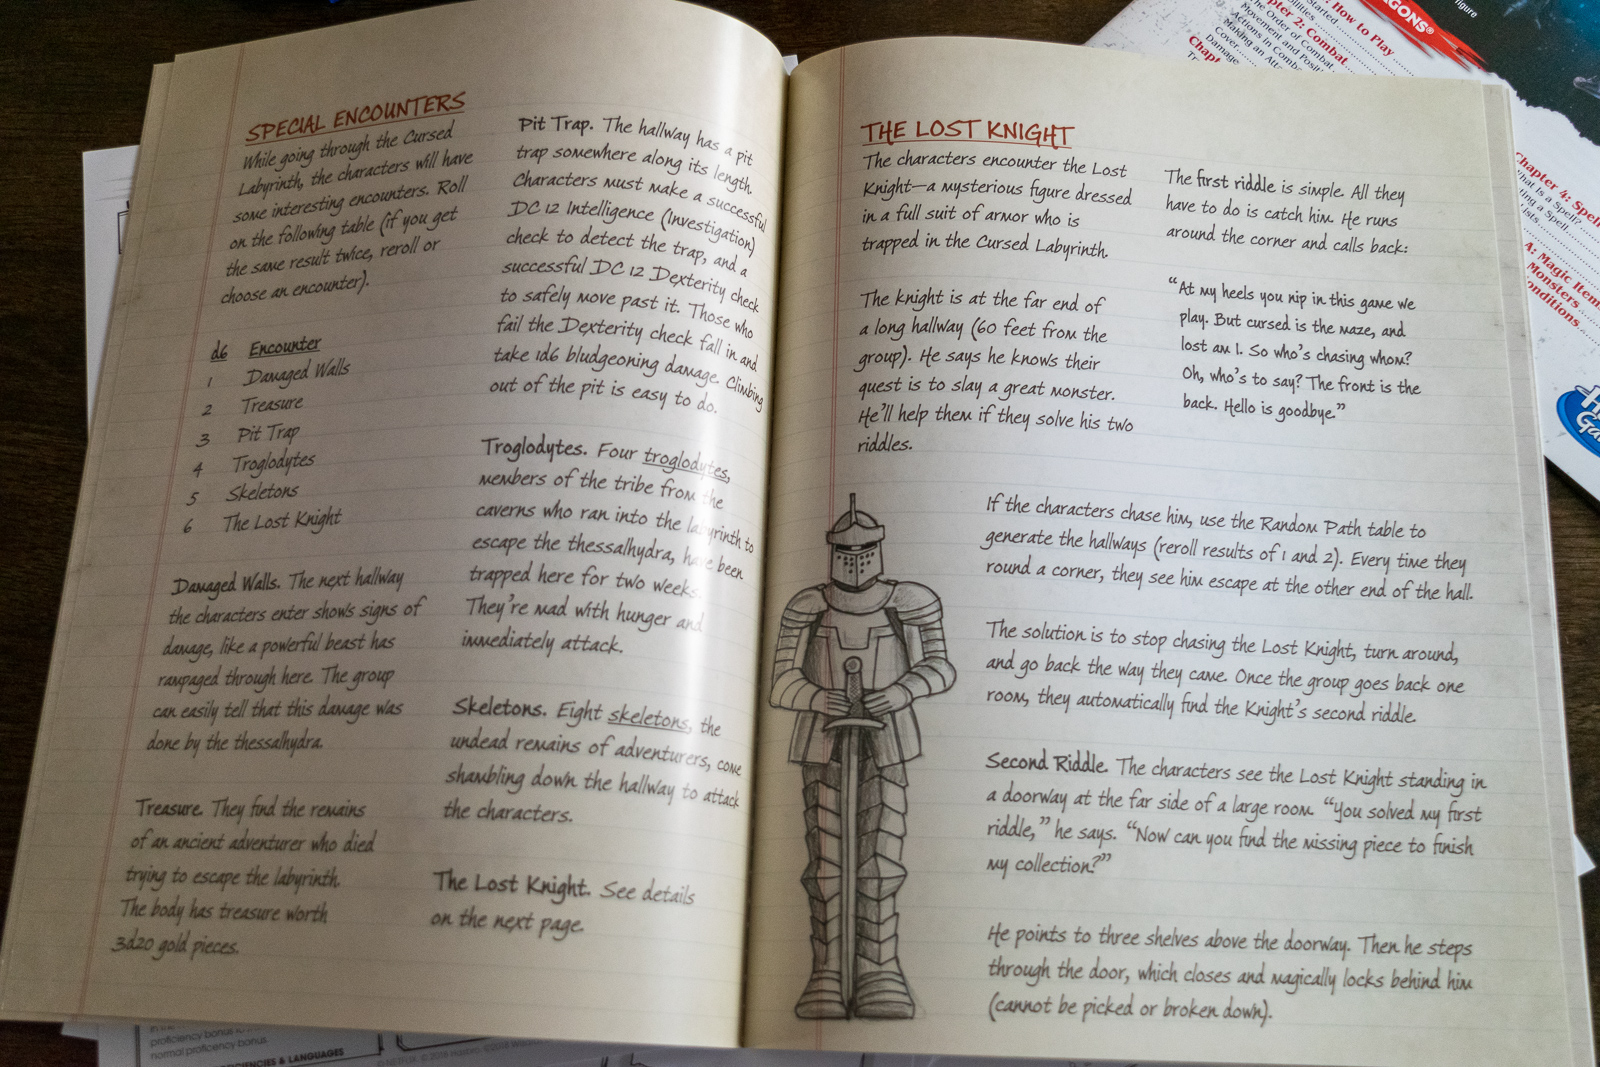 SPECIAL ENCOUNTERS
While going through the Cursed
Labyrinth, the characters will have
some interesting encounters. Roll
on the following table (if you get
the same result twice, reroll or
choose an encounter).
d6 Encounter
1 Damaged Walls
2 Treasure
3 Pit Trap
4 Troglodytes
5 Skeletons
6 The Lost Knight
Damaged Walls. The next hallway
the characters enter shows signs of
damage, like a powerful beast has
rampaged through here. The group
can easily tell that this damage was
done by the thessalhydra.
Treasure. They find the remains
of an ancient adventurer who died
trying to escape the labyrinth.
The body has treasure worth
3d20 gold pieces.
Pit Trap. The hallway has a pit
trap somewhere along its length.
Characters must make a successful
DC 12 Intelligence (Investigation)
check to detect the trap, and a
successful DC 12 Dexterity check
to safely move past it. Those who
fail the Dexterity check fall in and
take 1d6 bludgeoning damage. Climbing
out of the pit is easy to do.
Troglodytes. Four troglodytes,
members of the tribe from the
caverns who ran into the labyrinth to
escape the thessalhydra, have been
trapped here for two weeks.
They're mad with hunger and
immediately attack.
Skeletons. Eight skeletons, the
undead remains of adventurers, come
shambling down the hallway to attack
the characters.
The Lost Knight. See details
on the next page.
THE LOST KNIGHT
The characters encounter the Lost
Knight—a mysterious figure dressed
in a full suit of armor who is
trapped in the Cursed Labyrinth.
The knight is at the far end of
a long hallway (60 feet from the
group). He says he knows their
quest is to slay a great monster.
He'll help them if they solve his two
riddles.
The first riddle is simple. All they
have to do is catch him. He runs
around the corner and calls back:
"At my heels you nip in this game we
play. But cursed is the maze, and
lost am I. So who's chasing whom?
Oh, who's to say? The front is the
back. Hello is goodbye."
If the characters chase him, use the Random Path table to
generate the hallways (reroll results of 1 and 2). Every time they
round a corner, they see him escape at the other end of the hall.
The solution is to stop chasing the Lost Knight, turn around,
and go back the way they came. Once the group goes back one
room, they automatically find the Knight's second riddle.
Second Riddle. The characters see the Lost Knight standing in
a doorway at the far side of a large room. "You solved my first
riddle," he says. "Now can you find the missing piece to finish
my collection?"
He points to three shelves above the doorway. Then he steps
through the door, which closes and magically locks behind him
(cannot be picked or broken down).
: How to Play
Started
Chapter 2: Combat
The Order of Combat
Movement and
Actions in
Making an
Cover
Damage
figure
Chapter 4:
What Is a Spell?
a Spell
A: Magic
Monsters
proficiency bonus
normal proficiency bonus
& LANGUAGES